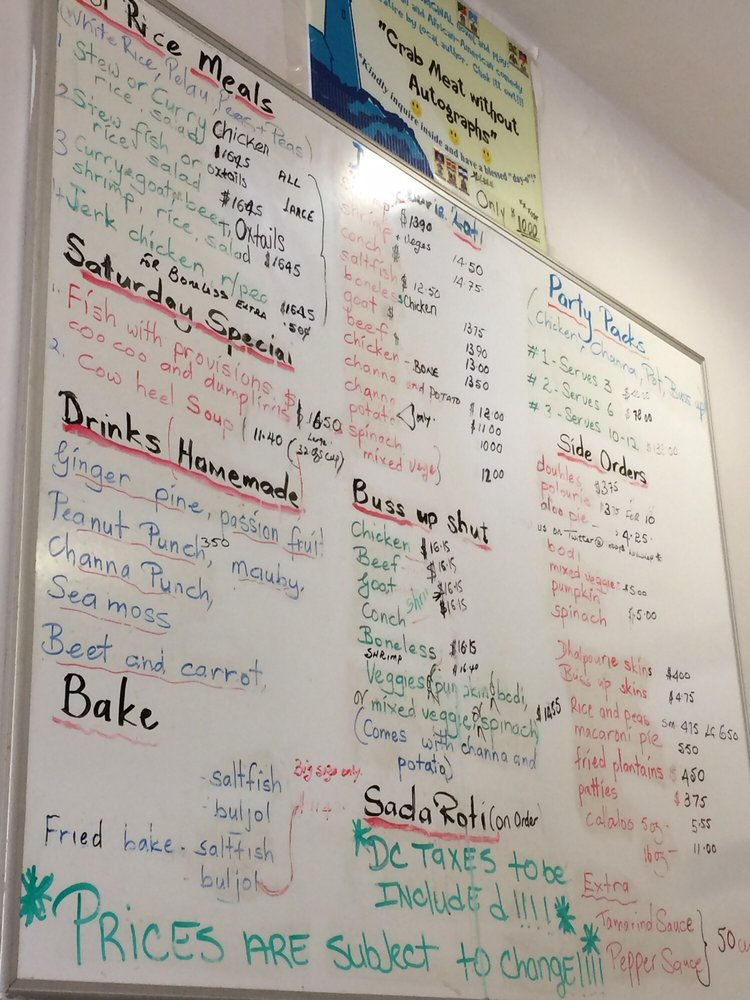 Rice Meals
(White Rice, Pelau, Peas + Peas)
1 Stew or Curry Chicken
rice, salad $1645 ALL
2 Stew fish or oxtails
rice, salad $1645 LARGE
3 Curry goat, beef, Oxtails
shrimp, rice, salad $1645
Jerk chicken, r/pea $1645
FOR BONELESS EXTRA .50¢
Saturday Special
1. Fish with provisions, $1650
coo coo and dumplins
2. Cow heel Soup 11.40 (32 oz cup)
Drinks (Homemade
Ginger, pine, passion fruit
Peanut Punch, 350 mauby,
Channa Punch,
Sea moss
Beet and carrot,
Bake
saltfish Big size only.
buljol
Fried bake - saltfish
buljol
PRICES ARE SUBJECT TO change!!!!
ORIGINAL
African-American comedy
by local author. Chek it out!!!
"Crab Meat without
Autographs"
"Kindly inquire inside and have a blessed "day-o"!!"
Only $10.00
$1390
shrimp + veges 14.50
conch 14.75
saltfish $12.50
boneless chicken
goat 1375
beef 1390
chicken - BONE 1300
channa and POTATO 1350
channa $12.00
potato only. $11.00
spinach 1000
(mixed vege) 1200
Buss up shut
Chicken $16.15
Beef $16.15
Goat $16.15
Conch $16.15
Boneless $16.15
SHRIMP $16.40
Veggies (pumpkin, bodi,
or mixed veggie, spinach) $1455
(Comes with channa and
potato)
Sada Roti (on Order)
DC TAXES to be
INCLUDED!!!!
Party Packs
(Chicken, Channa, Pot, Buss up
#1 - Serves 3
#2 - Serves 6 $78.00
#3 - Serves 10-12
Side Orders
doubles $375
polourie 375 FOR 10
aloo pie - 4.25
us on Twitter@
bodi
mixed veggies $5.00
pumpkin
spinach $5.00
Dhalpourie skins $400
Buss up skins $475
Rice and peas sm 475 LG 650
macaroni pie 550
fried plantains $450
patties $375
calaloo 8oz - 5.55
16oz - 11.00
Extra
Tamarind Sauce
Pepper Sauce 50